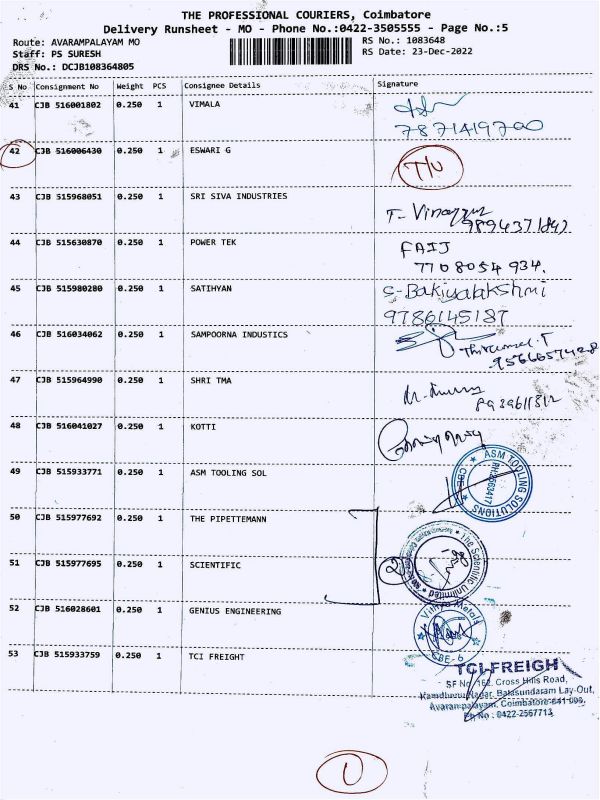 THE PROFESSIONAL COURIERS, Coimbatore
Delivery Runsheet - MO - Phone No.:0422-3505555 - Page No.:5
Route: AVARAMPALAYAM MO
Staff: PS SURESH
DRS No.: DCJB108364805
RS No.: 1083648
RS Date: 23-Dec-2022
S No Consignment No Weight PCS Consignee Details Signature
41 CJB 516001802 0.250 1 VIMALA
7871419700
42 CJB 516006430 0.250 1 ESWARI G
43 CJB 515968051 0.250 1 SRI SIVA INDUSTRIES
44 CJB 515630870 0.250 1 POWER TEK FAIJ
7708054 934.
45 CJB 515980280 0.250 1 SATIHYAN S-Bakiyalakshmi
9786145187
46 CJB 516034062 0.250 1 SAMPOORNA INDUSTICS
47 CJB 515964990 0.250 1 SHRI TMA
48 CJB 516041027 0.250 1 KOTTI
49 CJB 515933771 0.250 1 ASM TOOLING SOL
ASM TOOLING SOLUTIONS
CBE
50 CJB 515977692 0.250 1 THE PIPETTEMANN
51 CJB 515977695 0.250 1 SCIENTIFIC
2
The Scientific Unlimited
52 CJB 516028601 0.250 1 GENIUS ENGINEERING
Vithya Metals
CBE-6
53 CJB 515933759 0.250 1 TCI FREIGHT
TCI FREIGH
SF No 162, Cross Hills Road,
Nagar, Balasundaram Lay-Out,
Avarampalayam, Coimbatore-641 006.
Ph No : 0422-2567713